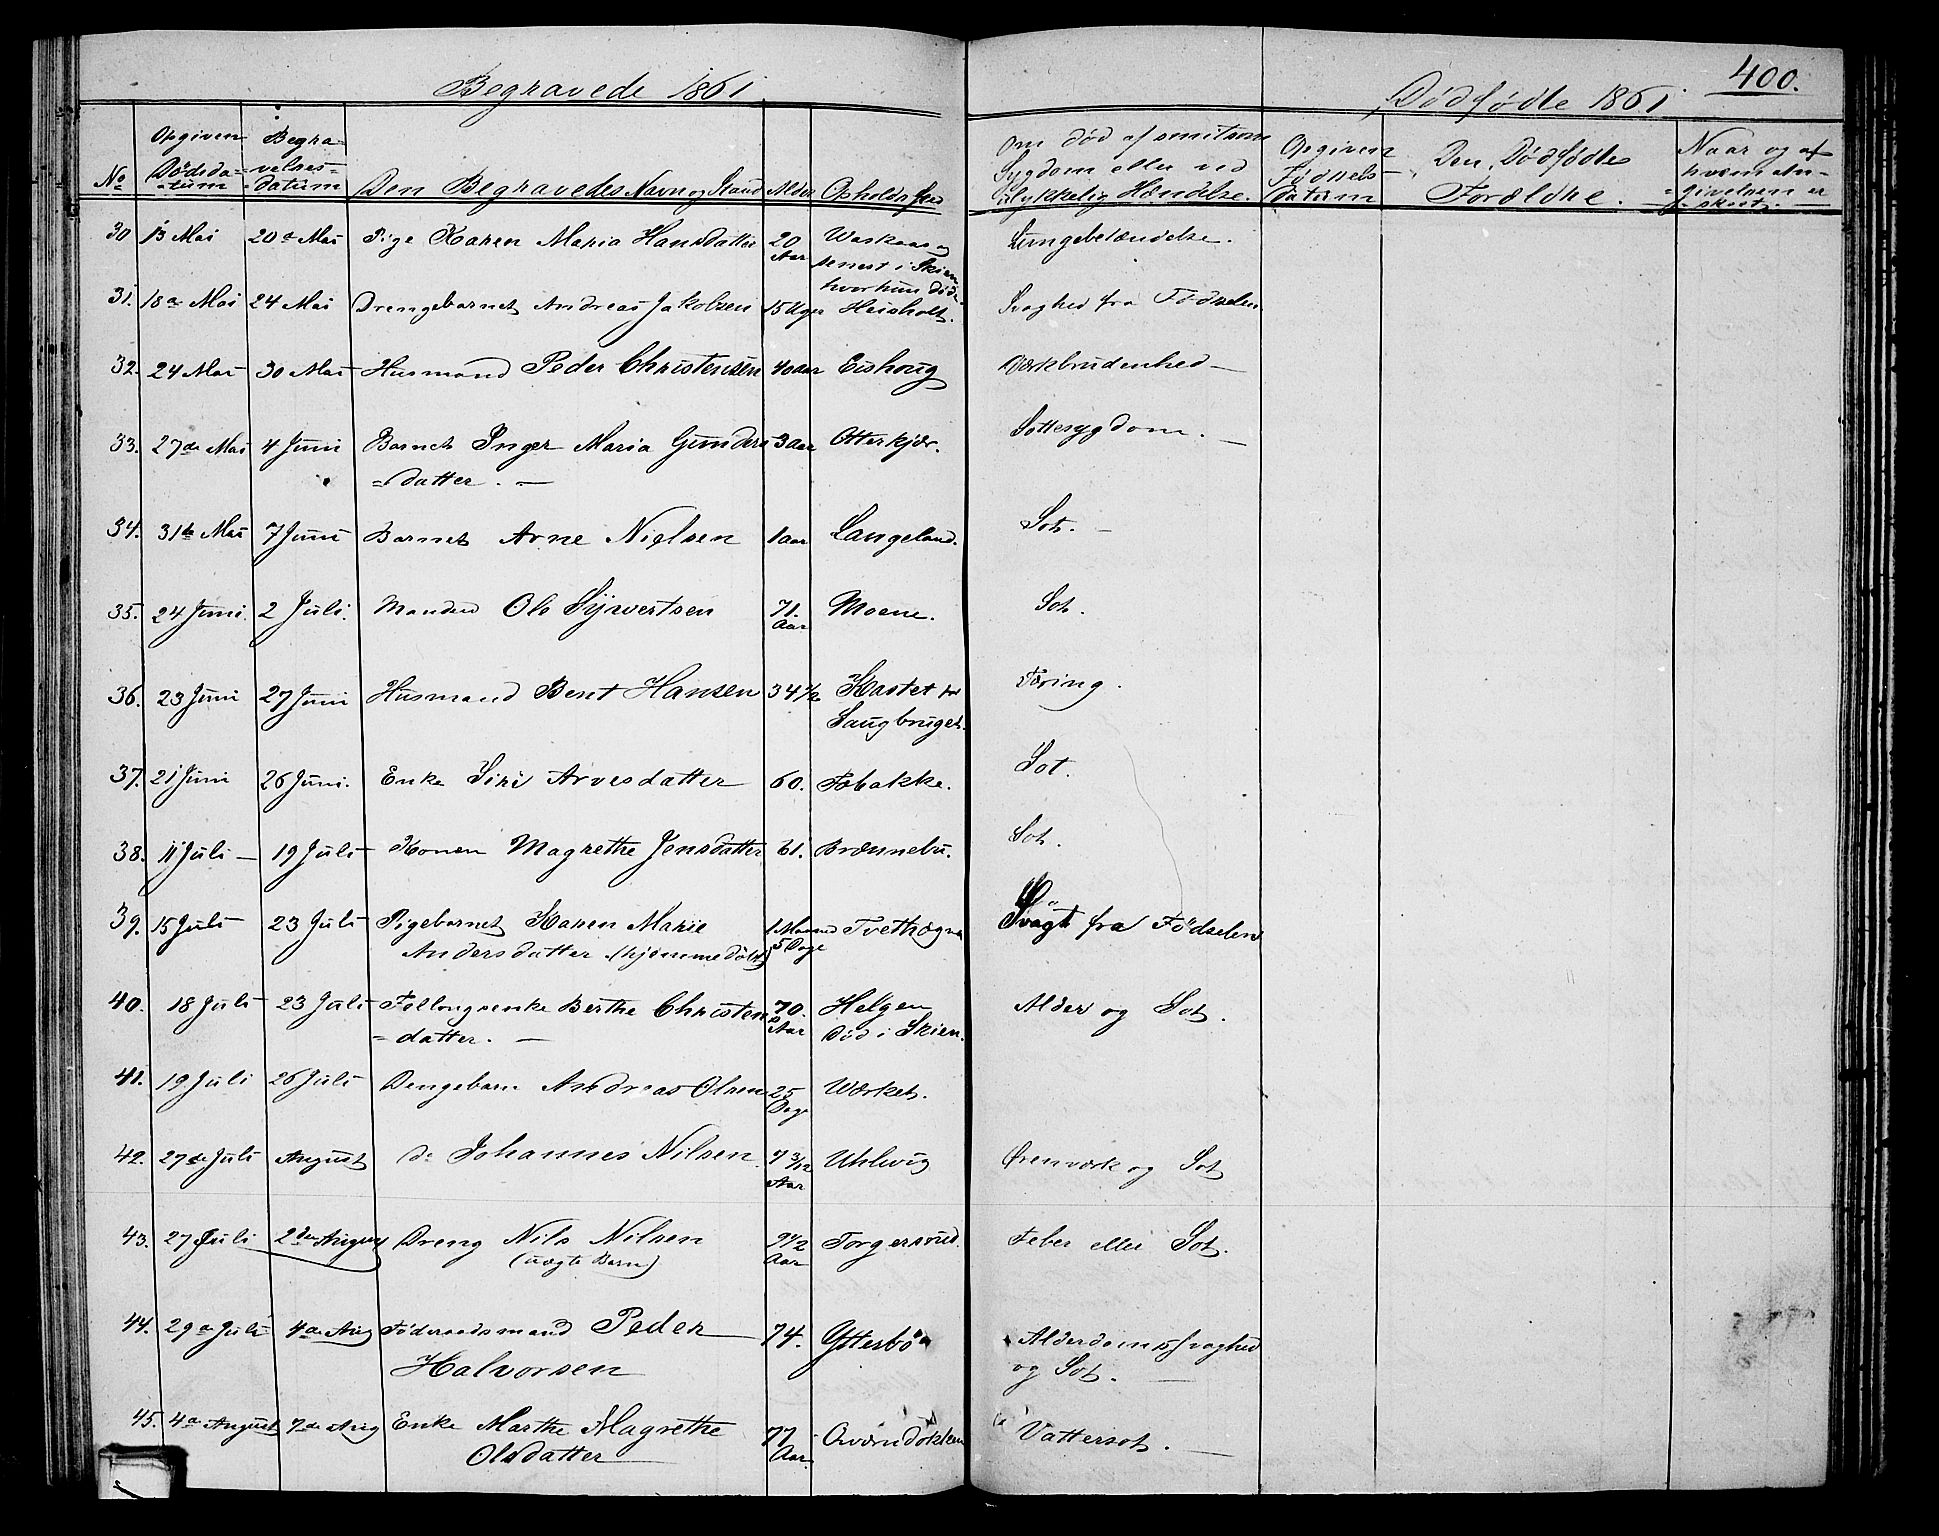 Begravede 1861
Dødfødte 1861
400.
No
Opgiven Dødsda=tum
Begra=velses=datum
Den Begravedes Navn og Stand
Alder
Opholdssted
Om død af smitsom Sygdom eller ved ulykkelig Hændelse.
Opgiven Fødsels=datum
Den Dødfødtes Forældre.
Naar og af hvem An=givelsen er skeet.
30 13 Mai 20de Mai Pige Karen Maria Hansdatter 20 Aar senest i Skien hvor hun døde. Lungebetændelse.
31. 18de Mai 24 Mai Drengebarnet Andreas Jakobsen 15 Uger Heisholt. Svaghed fra Fødselen.
32. 24 Mai 30 Mai Husmand Peder Christensen 40 aar Eishoug Værkbrudenhed —
33. 27de Mai 4 Juni Barnet Inger Maria Gunders 3 aar Otterkjær. Sottesygdom. —
=datter. —
34. 31te Mai 7 Juni Barnet Arne Nielsen 1 aar Langeland. Sot. —
35. 24 Juni. 2 Juli. Manden Ole Syvertsen 71. Aar Moene. Sot.
36. 23 Juni 27 Juni Husmand Bent Hansen 34 1/2 Kastet
Saugbruget. Tæring.
37. 21 Juni 26 Juni. Enke Siri Arvesdatter 60. Sot.
38. 11 Juli — 19 Juli Konen Magrethe Jensdatter 61. Brænnebu. Sot.
39. 15 Juli 23 Juli Pigebarnet Karen Marie 1 Maaned Tvethogne Svagt fra Fødselen
Andersdatter (hjemmedøbt) 5 Dage
40. 18 Juli 23 Juli Follougsenke Berthe Christen 70. Aar Helgen Alder og Sot.
=datter. — Død i Skien.
41. 19 Juli 26 Juli Dengebarn Andreas Olsen 25 Dage Værket.
42. 27de Juli August do Johannes Nilsen 7 3/12 Aar Uhlvig Ørenværk og Sot
43. 27 Juli 2den August Dreng Nils Nilsen 9 1/2 Aar Torgersrud. Feber eller Sot.
(uægte Barn)
44. 29de Juli 4de Aug Føderaadsmand Peder 74. Ytterbø Alderdomssvaghed
Halvorsen og Sot. —
45. 4de August 7de Aug Enke Marthe Magrethe 77 Aar. Vattersot. —
Olsdatter